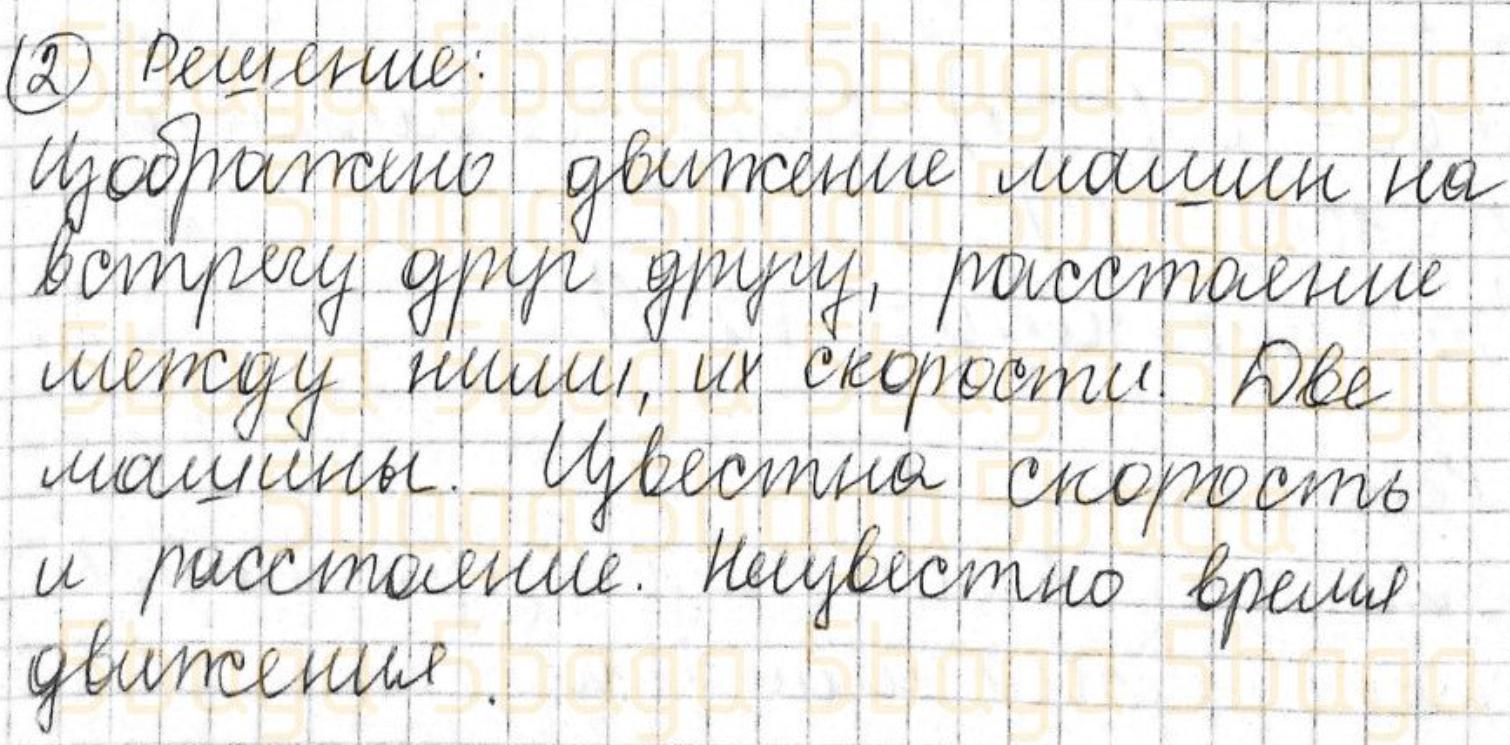 ② Решение:
Изображено движение машин на
встречу друг другу, расстояние
между ними, их скорости. Две
машины. Известна скорость
и расстояние. Неизвестно время
движения.